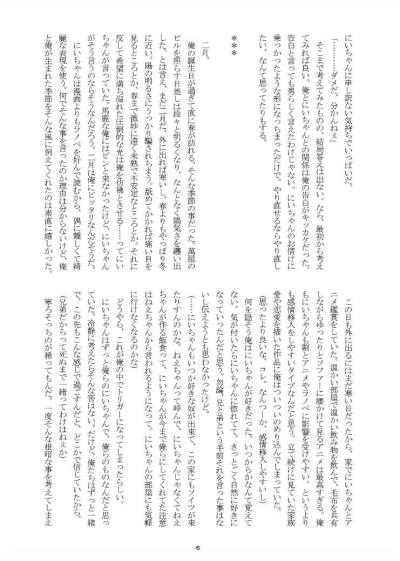 にいちゃんに申し訳ない気持ちでいっぱいだ。
「…………ダメだ、分かんねぇ」
そこまで考えてみたものの、結局答えは出ない。なら、最初から考え
てみれば良い。俺とにいちゃんとの関係は俺の告白がキッカケだった。
告白と言っても男らしく言えたわけじゃない。にいちゃんのお情けに
乗っかったような形になっちまっただけで、やり直せるならやり直し
たい、なんて思ってたりもする。
***
二月。
俺の誕生日が過ぎて直に春が訪れる、そんな季節の事だった。萬屋の
ビルを照らす日差しは段々と明るくなり、なんとなく陽気さを纏い出
した。とは言え、まだ二月だ。外に出れば寒いし、春よりもやっぱり冬
に近い。陽の明るさにうっかり騙されちまう。舐めてかかれば痛い目を
見るところとか、春まで微妙に遠く未熟で不安定なところとか、それに
反して希望に満ち溢れた圧倒的な光は俺を彷彿とさせる……ってにい
ちゃんが言っていた。馬鹿な俺にはピンと来なかったけど、にいちゃん
がそう言うのならそうなんだろう。二月は俺にピッタリなんだそうだ。
にいちゃんは漫画よりもラノベを好んで読むから、偶に難しくて綺
麗な表現を使う。何でそんな事を言ったのか理由は分からないけど、俺
と俺が生まれた季節をそんな風に例えてくれたのは素直に嬉しかった。
この日も外に出るにはまだ寒い日だったから、家でにいちゃんとア
ニメ鑑賞をしていた。温かい部屋で温かい飲み物を飲んで、毛布を共有
しながらゆったりとソファーに腰かけて見るアニメは最高すぎる。俺
もにいちゃんも割とアニメやラノベに影響を受けやすい、というより
も感情移入をしやすいタイプなんだと思う。立て続けに見ていた家族
愛や恋愛を描いた作品に俺はついついのめり込んでしまっていた。
（思ったより良いな、コレ。なんつーか、感情移入しやすいし）
何を隠そう俺はにいちゃんが好きだった。いつからかなんて覚えて
ない。気が付いたらにいちゃんに惚れてて、きっとごく自然に好きに
なっていったんだと思う。勿論、兄と弟という手前それを言った事はな
いし伝えようとも思わなかったけど。
（……にいちゃんもいつか好きな奴が出来て、この家にもソイツが来
たりすんのかな。ねえちゃんって呼んで、にいちゃんじゃなくてねえ
ちゃんが作る飯食って、にいちゃんが今まで俺らにしてくれてた注意
はねえちゃんから言われるようになって。にいちゃんの部屋にも気軽
に行けなくなるのかな）
どうやら、これが俺の中でトリガーになってしまったらしい。
にいちゃんはずっと俺らのにいちゃんで、俺らのものなんだと思っ
ていた。冷静に考えたらそんな筈はない。だけど、俺たちはずっと一緒
で、この先もこんな感じで過ごすんだと、どこかで信じていたから。
（兄弟だからって死ぬまで一緒ってわけはねぇか）
寧ろそっちのが稀ってもんだ。一度そんな根暗な事を考えてしまえ
6